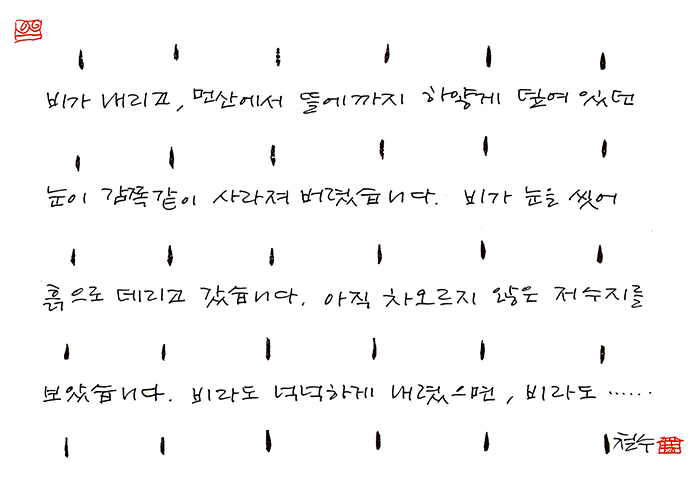 비가 내리고, 먼산에서 뜰에까지 하얗게 덮여 있던
눈이 감쪽같이 사라져 버렸습니다. 비가 눈을 씻어
흙으로 데리고 갔습니다. 아직 차오르지 않은 저수지를
보았습니다. 비라도 넉넉하게 내렸으면, 비라도 ……
철수